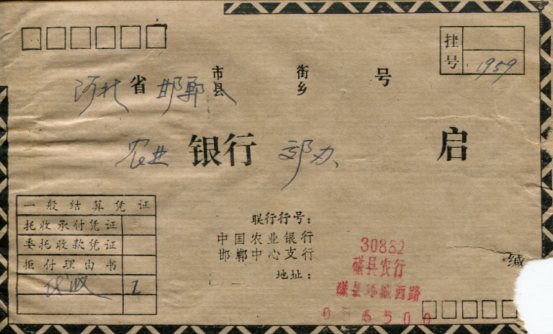 挂号 1959
河北省邯郸市县 街乡 号
农业银行郊办 启
一般结算凭证
托收承付凭证
委托收款凭证
拒付理由书
联行行号:
中国农业银行
邯郸中心支行
地址:
30882
磁县农行
磁县环城西路
056500
缄